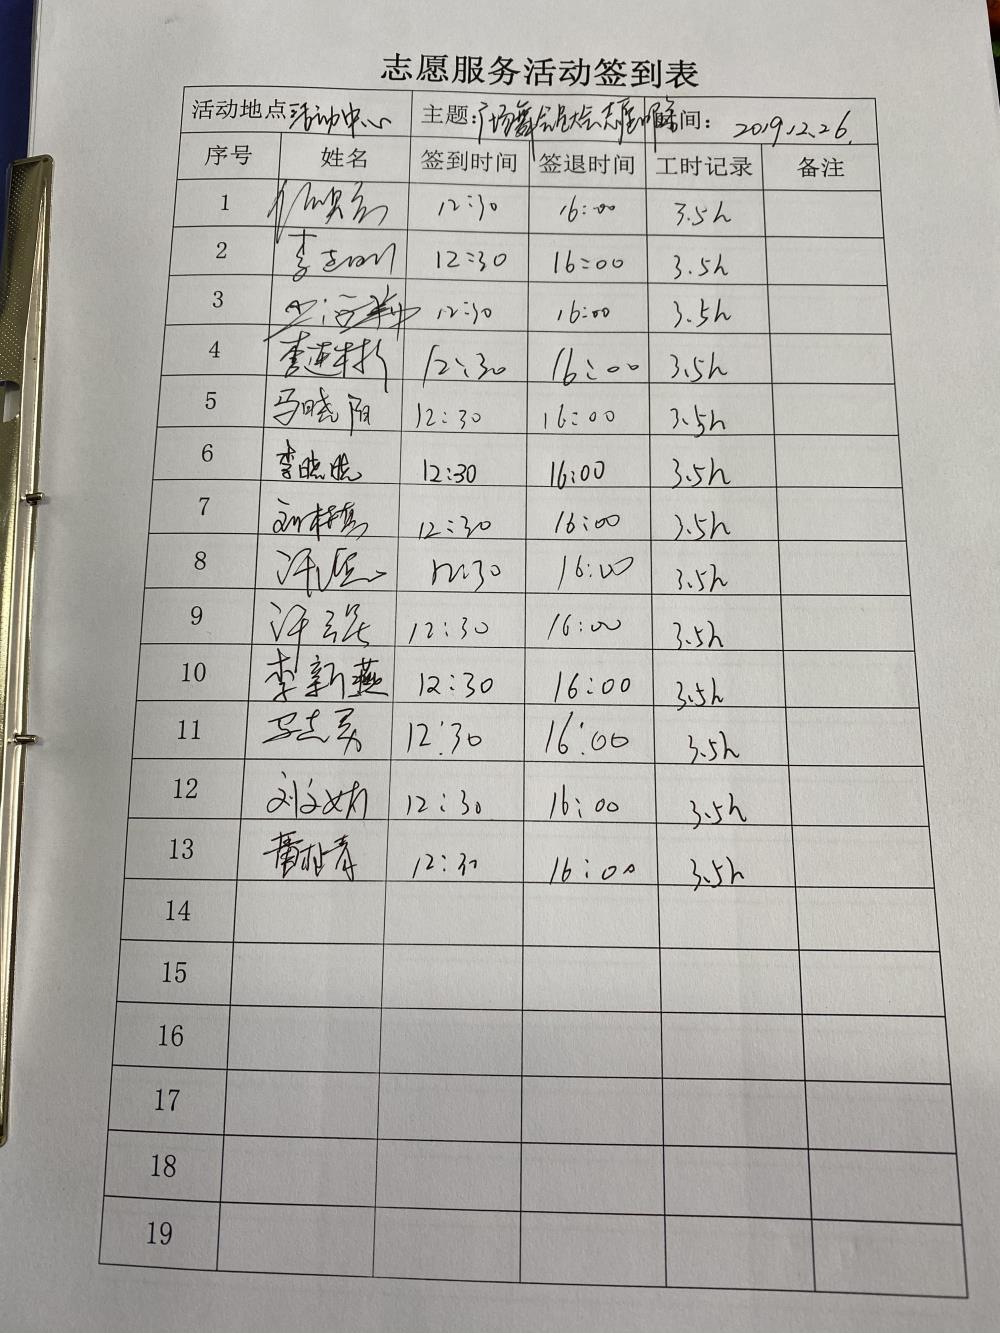 志愿服务活动签到表
活动地点 活动中心 主题:广场舞会员大会志愿服务 时间: 2019.12.26.
序号 姓名 签到时间 签退时间 工时记录 备注
1 12:30 16:00 3.5h
2 李志刚 12:30 16:00 3.5h
3 12:30 16:00 3.5h
4 李连彬 12:30 16:00 3.5h
5 马晓阳 12:30 16:00 3.5h
6 李晓晓 12:30 16:00 3.5h
7 12:30 16:00 3.5h
8 12:30 16:00 3.5h
9 12:30 16:00 3.5h
10 李新燕 12:30 16:00 3.5h
11 12:30 16:00 3.5h
12 刘文娟 12:30 16:00 3.5h
13 黄桂春 12:30 16:00 3.5h
14
15
16
17
18
19